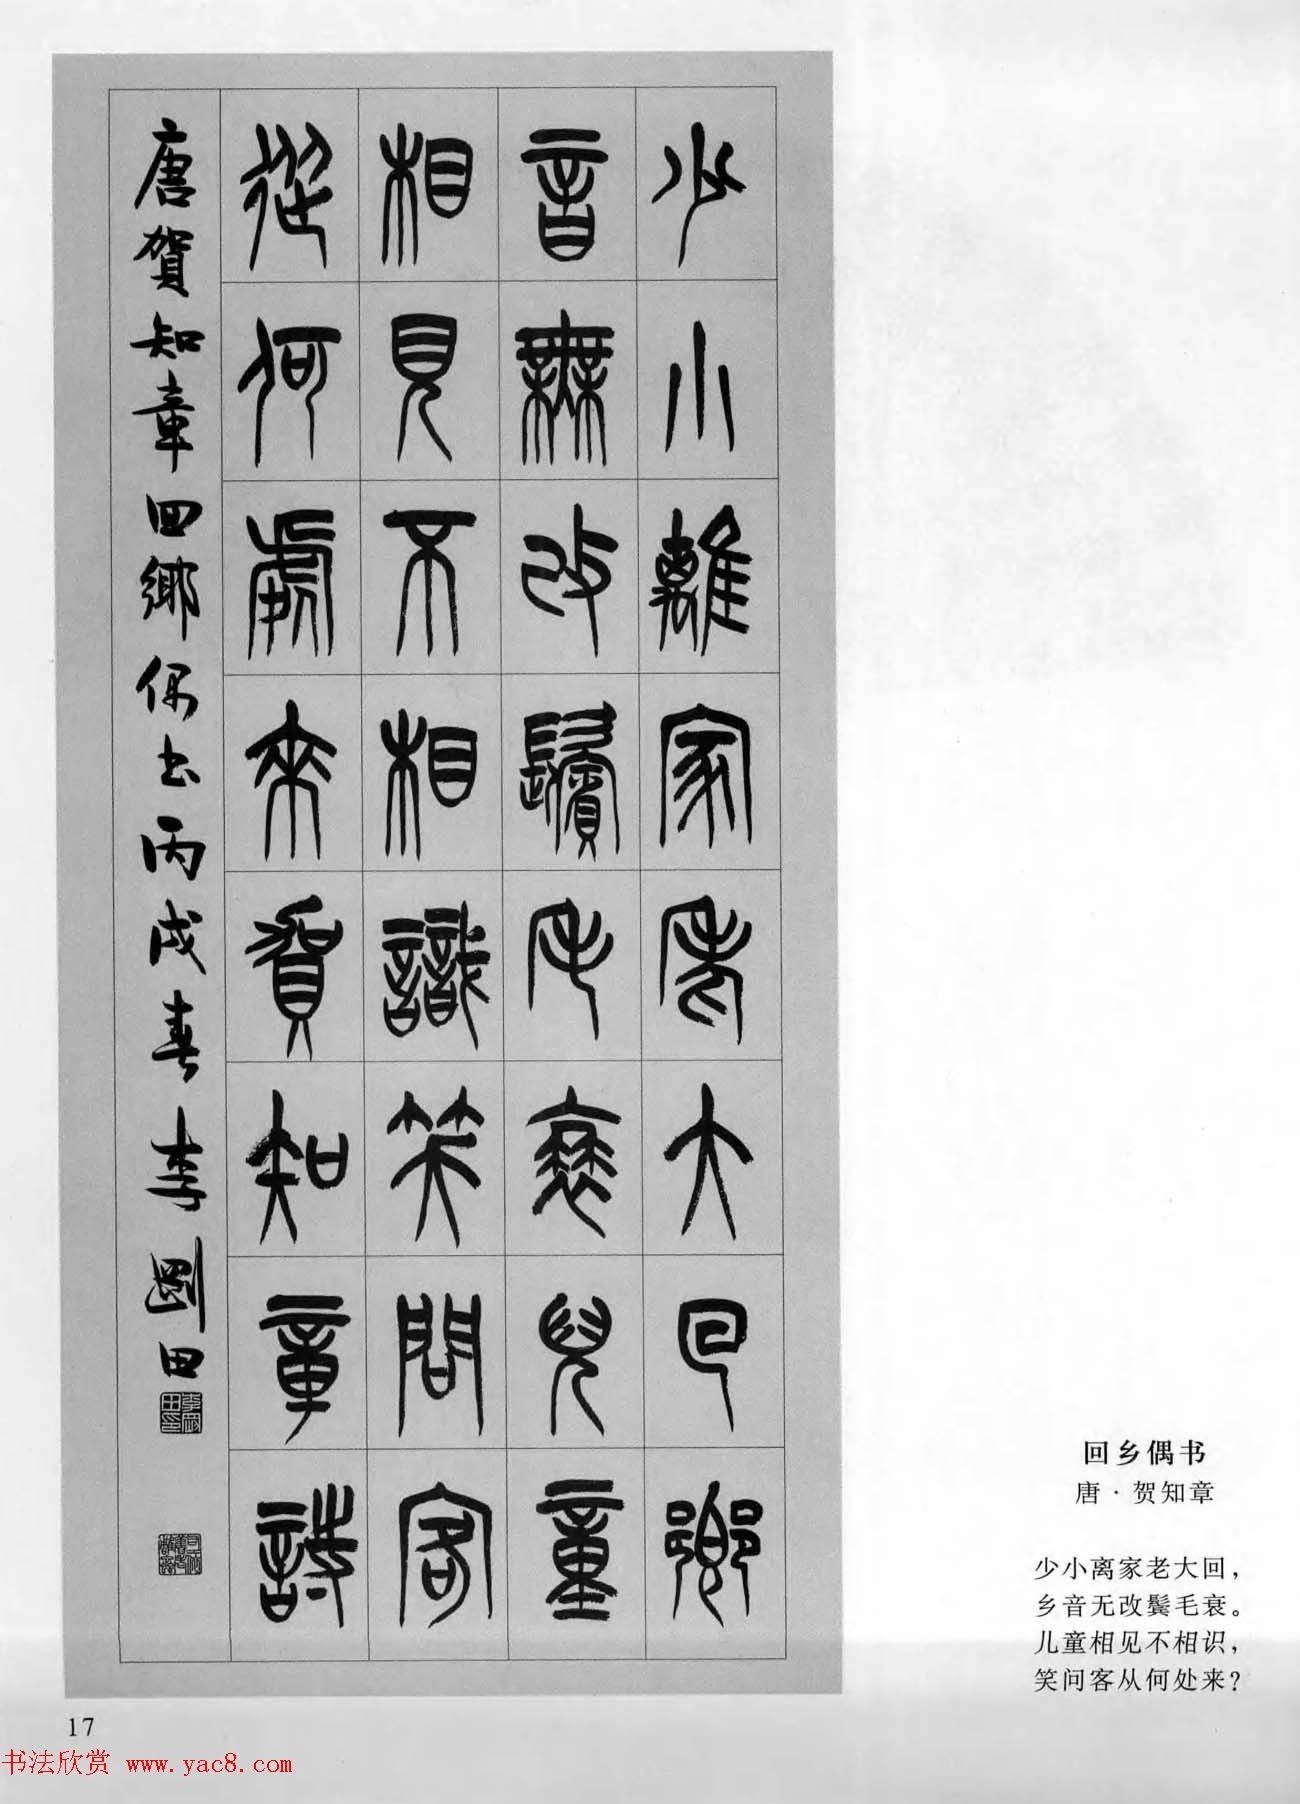 少小離家老大回鄉
音無改鬢毛衰兒童
相見不相識笑問客
從何處來賀知章詩
唐賀知章回鄉偶書丙戌春李剛田
回乡偶书
唐·贺知章
少小离家老大回，
乡音无改鬓毛衰。
儿童相见不相识，
笑问客从何处来？
17
书法欣赏 www.yac8.com